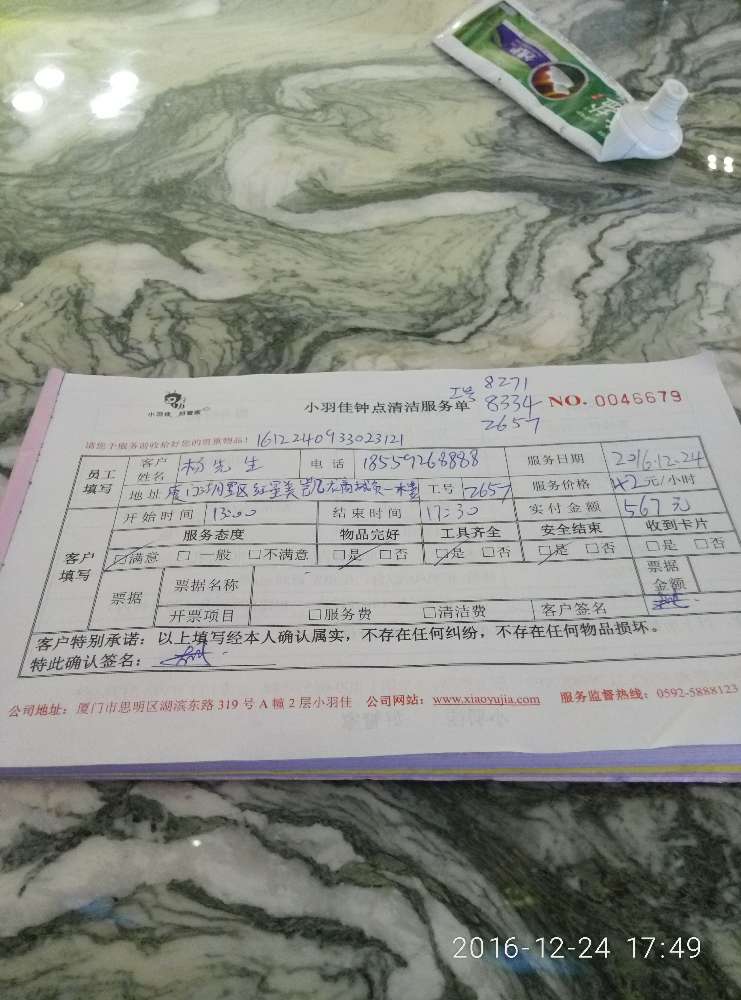 小羽佳 好管家
小羽佳钟点清洁服务单
工号 8271
8334
2657
NO. 0046679
请您于服务前收拾好您的贵重物品! 1612240933023121
员工填写 客户姓名 杨先生 电话 18559268888 服务日期 2016.12.24
地址 厦门湖里区红星美凯龙商场负一楼 工号 2657 服务价格 42元/小时
客户填写 开始时间 13:00 结束时间 17:30 实付金额 567元
服务态度 物品完好 工具齐全 安全结束 收到卡片
☑满意 □一般 □不满意 ☑是 □否 ☑是 □否 ☑是 □否 □是 □否
票据 票据名称 票据金额
开票项目 □服务费 □清洁费 客户签名
客户特别承诺：以上填写经本人确认属实，不存在任何纠纷，不存在任何物品损坏。
特此确认签名：
公司地址：厦门市思明区湖滨东路 319 号 A 幢 2 层小羽佳 公司网站：www.xiaoyujia.com 服务监督热线：0592-5888123
2016-12-24 17:49